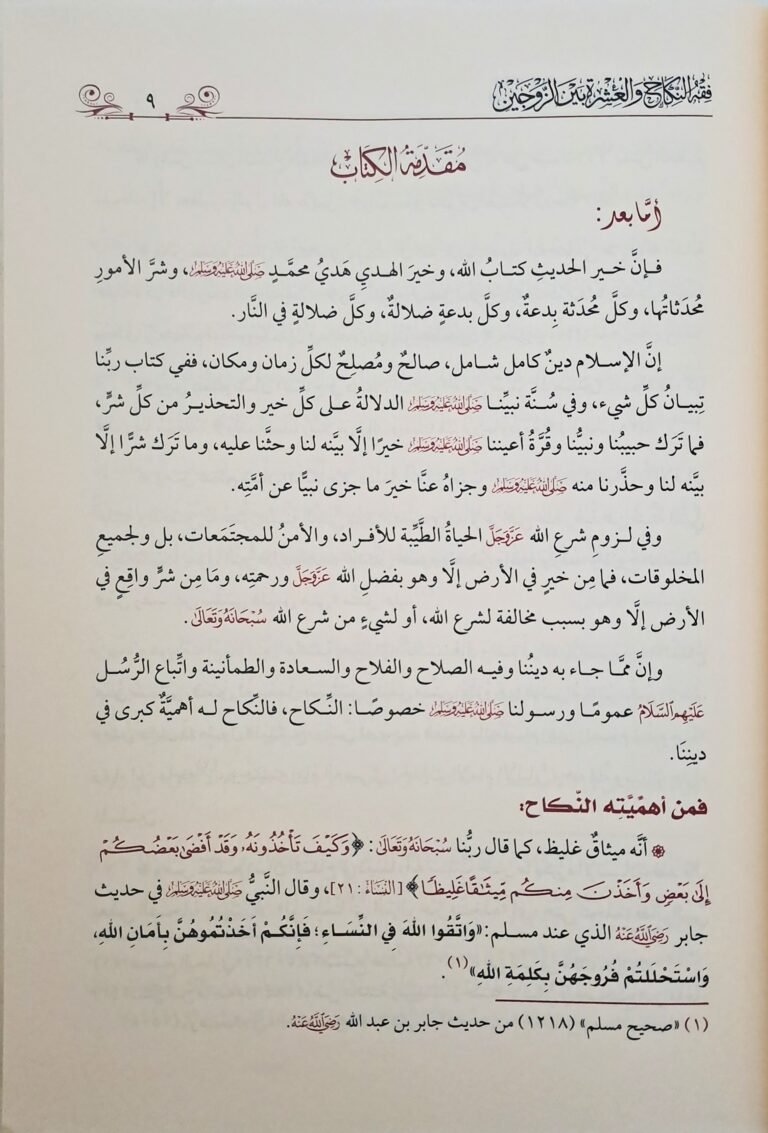 فِقْهُ النِّكَاحِ وَالْعِشْرَةِ بَيْنَ الزَّوْجَيْنِ
٩
مُقَدِّمَةُ الكِتَابِ
أمَّا بعد:
فإنَّ خير الحديثِ كتابُ الله، وخيرَ الهديِ هَديُ محمَّدٍ صَلَّى اللَّهُ عَلَيْهِ وَسَلَّمَ، وشرَّ الأمورِ
مُحدَثاتُها، وكلَّ مُحدَثة بِدعةٌ، وكلَّ بدعةٍ ضلالةٌ، وكلَّ ضلالةٍ في النَّار.
إنَّ الإسلام دينٌ كامل شامل، صالحٌ ومُصلِحٌ لكلِّ زمان ومكان، ففي كتاب ربِّنا
تِبيانُ كلِّ شيء، وفي سُنَّة نبيِّنا صَلَّى اللَّهُ عَلَيْهِ وَسَلَّمَ الدلالةُ على كلِّ خير والتحذيرُ من كلِّ شرٍّ،
فما تَرَك حبيبُنا ونبيُّنا وقُرَّةُ أعيننا صَلَّى اللَّهُ عَلَيْهِ وَسَلَّمَ خيرًا إلَّا بيَّنه لنا وحثَّنا عليه، وما تَرَك شرًّا إلَّا
بيَّنه لنا وحذَّرنا منه صَلَّى اللَّهُ عَلَيْهِ وَسَلَّمَ وجزاهُ عنَّا خيرَ ما جزى نبيًّا عن أمَّتِه.
وفي لزومِ شرعِ الله عَزَّوَجَلَّ الحياةُ الطَّيِّبة للأفراد، والأمنُ للمجتَمَعات، بل ولجميعِ
المخلوقات، فما مِن خيرٍ في الأرض إلَّا وهو بفضلِ الله عَزَّوَجَلَّ ورحمتِه، ومَا مِن شرٍّ واقِعٍ في
الأرض إلَّا وهو بسبب مخالفة لشرع الله، أو لشيءٍ من شرع الله سُبْحَانَهُ وَتَعَالَى.
وإنَّ ممَّا جاء به ديننُا وفيه الصلاح والفلاح والسعادة والطمأنينة واتِّباع الرُّسُل
عَلَيْهِمُ السَّلَامُ عمومًا ورسولنا صَلَّى اللَّهُ عَلَيْهِ وَسَلَّمَ خصوصًا: النِّكاح، فالنِّكاح له أهميَّةٌ كبرى في
دينِنَا.
فمن أهمِّيَّتِه النِّكاح:
أنَّه ميثاقٌ غليظ، كما قال ربُّنا سُبْحَانَهُ وَتَعَالَى: ﴿وَكَيْفَ تَأْخُذُونَهُۥ وَقَدْ أَفْضَىٰ بَعْضُكُمْ
إِلَىٰ بَعْضٍ وَأَخَذْنَ مِنكُم مِّيثَٰقًا غَلِيظًا﴾ [النساء: ٢١]، وقال النَّبيُّ صَلَّى اللَّهُ عَلَيْهِ وَسَلَّمَ في حديث
جابر رَضِيَ اللَّهُ عَنْهُ الذي عند مسلم: «وَاتَّقُوا اللهَ فِي النِّسَاءِ؛ فَإِنَّكُمْ أَخَذْتُمُوهُنَّ بِأَمَانِ اللهِ،
وَاسْتَحْلَلْتُمْ فُرُوجَهُنَّ بِكَلِمَةِ اللهِ»(١).
(١) «صحيح مسلم» (١٢١٨) من حديث جابر بن عبد الله رَضِيَ اللَّهُ عَنْهُ.